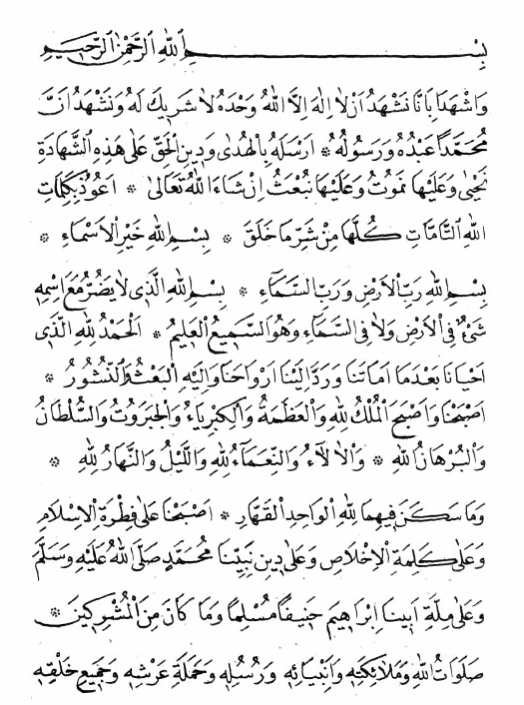 بِسْــــــــمِ اللّٰهِ الرَّحْمٰنِ الرَّحِيمِ
وَاشْهَدَا بِاَنَّا نَشْهَدُ اَنْ لَا اِلٰهَ اِلَّا اللّٰهُ وَحْدَهُ لَا شَرِيكَ لَهُ وَنَشْهَدُ اَنَّ
مُحَمَّدًا عَبْدُهُ وَرَسُولُهُ * اَرْسَلَهُ بِالْهُدٰى وَدِينِ الْحَقِّ عَلٰى هٰذِهِ الشَّهَادَةِ
نَحْيٰى وَعَلَيْهَا نَمُوتُ وَعَلَيْهَا نُبْعَثُ اِنْ شَاءَ اللّٰهُ تَعَالٰى * اَعُوذُ بِكَلِمَاتِ
اللّٰهِ التَّامَّاتِ كُلِّهَا مِنْ شَرِّ مَا خَلَقَ * بِسْمِ اللّٰهِ خَيْرِ الْاَسْمَاءِ *
بِسْمِ اللّٰهِ رَبِّ الْاَرْضِ وَرَبِّ السَّمَاءِ * بِسْمِ اللّٰهِ الَّذِى لَا يَضُرُّ مَعَ اسْمِهِ
شَىْءٌ فِى الْاَرْضِ وَلَا فِى السَّمَاءِ وَهُوَ السَّمِيعُ الْعَلِيمُ * اَلْحَمْدُ لِلّٰهِ الَّذِى
اَحْيَانَا بَعْدَمَا اَمَاتَنَا وَرَدَّ اِلَيْنَا اَرْوَاحَنَا وَاِلَيْهِ الْبَعْثُ وَالنُّشُورُ *
اَصْبَحْنَا وَاَصْبَحَ الْمُلْكُ لِلّٰهِ وَالْعَظَمَةُ وَالْكِبْرِيَاءُ وَالْجَبَرُوتُ وَالسُّلْطَانُ
وَالْبُرْهَانُ لِلّٰهِ * وَالْاٰلَاءُ وَالنَّعْمَاءُ لِلّٰهِ وَاللَّيْلُ وَالنَّهَارُ لِلّٰهِ *
وَمَا سَكَنَ فِيهِمَا لِلّٰهِ الْوَاحِدِ الْقَهَّارِ * اَصْبَحْنَا عَلٰى فِطْرَةِ الْاِسْلَامِ
وَعَلٰى كَلِمَةِ الْاِخْلَاصِ وَعَلٰى دِينِ نَبِيِّنَا مُحَمَّدٍ صَلَّى اللّٰهُ عَلَيْهِ وَسَلَّمَ
وَعَلٰى مِلَّةِ اَبِينَا اِبْرَاهِيمَ حَنِيفًا مُسْلِمًا وَمَا كَانَ مِنَ الْمُشْرِكِينَ *
صَلَوَاتُ اللّٰهِ وَمَلَائِكَتِهِ وَاَنْبِيَائِهِ وَرُسُلِهِ وَحَمَلَةِ عَرْشِهِ وَجَمِيعِ خَلْقِهِ